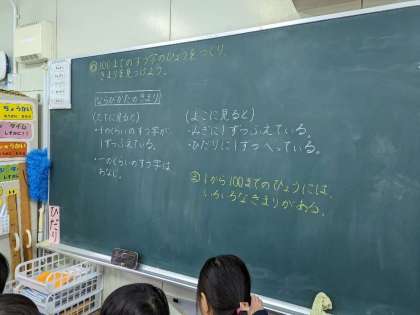 100までのすう字のひょうをつくり、
きまりを見つけよう。
ならびかたのきまり
(たてに見ると)
・十のくらいのすう字が
1ずつふえている。
・一のくらいのすう字は
おなじ。
(よこに見ると)
・みぎに1ずつふえている。
・ひだりに1ずつへっている。
1から100までのひょうには、
いろいろなきまりがある。
ちょうかい
タイム
ひだり